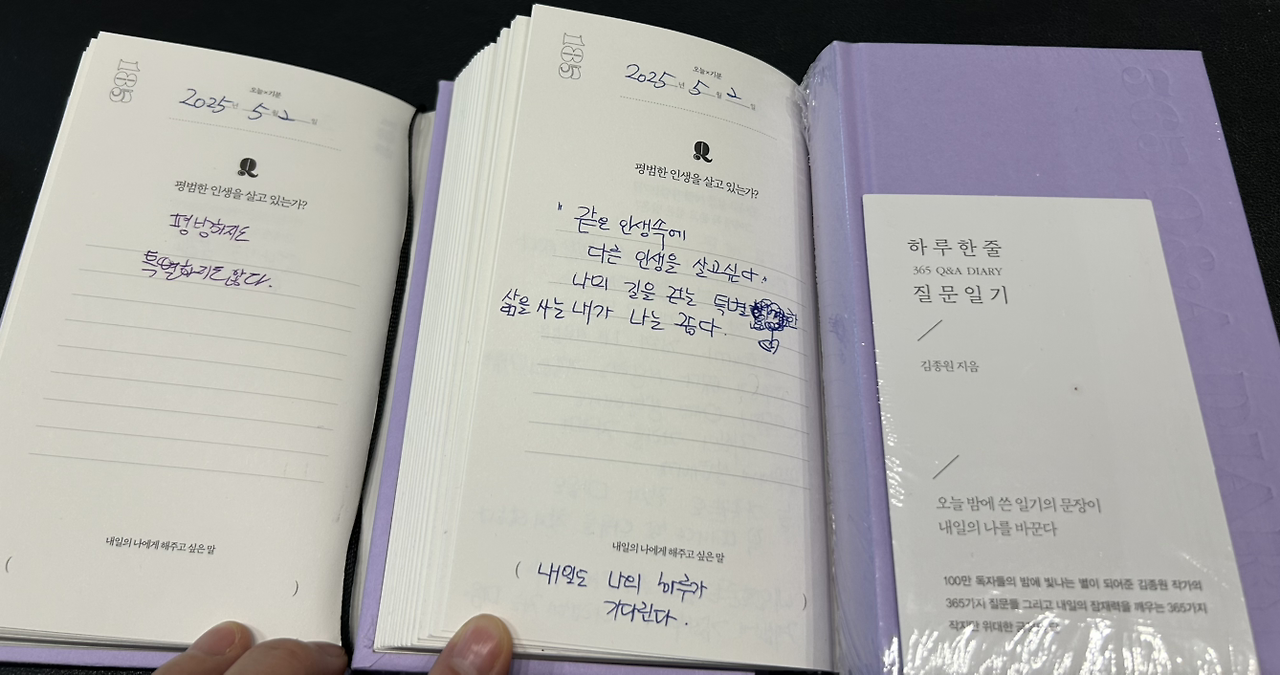 185
오늘×기분
2025년 5월 2일
Q
평범한 인생을 살고 있는가?
평범하지도
특별하지도 않다.
내일의 나에게 해주고 싶은 말
( )
185
오늘×기분
2025년 5월 2일
Q
평범한 인생을 살고 있는가?
같은 인생속에
다른 인생을 살고싶다.
나의 길을 걷는 특별한
삶을 사는 내가 나는 좋다.
내일의 나에게 해주고 싶은 말
( 내일도 나의 하루가
기다린다. )
하루 한 줄
365 Q&A DIARY
질문 일기
김종원 지음
오늘 밤에 쓴 일기의 문장이
내일의 나를 바꾼다
100만 독자들의 밤에 빛나는 별이 되어준 김종원 작가의
365가지 질문들 그리고 내일의 잠재력을 깨우는 365가지
작지만 위대한